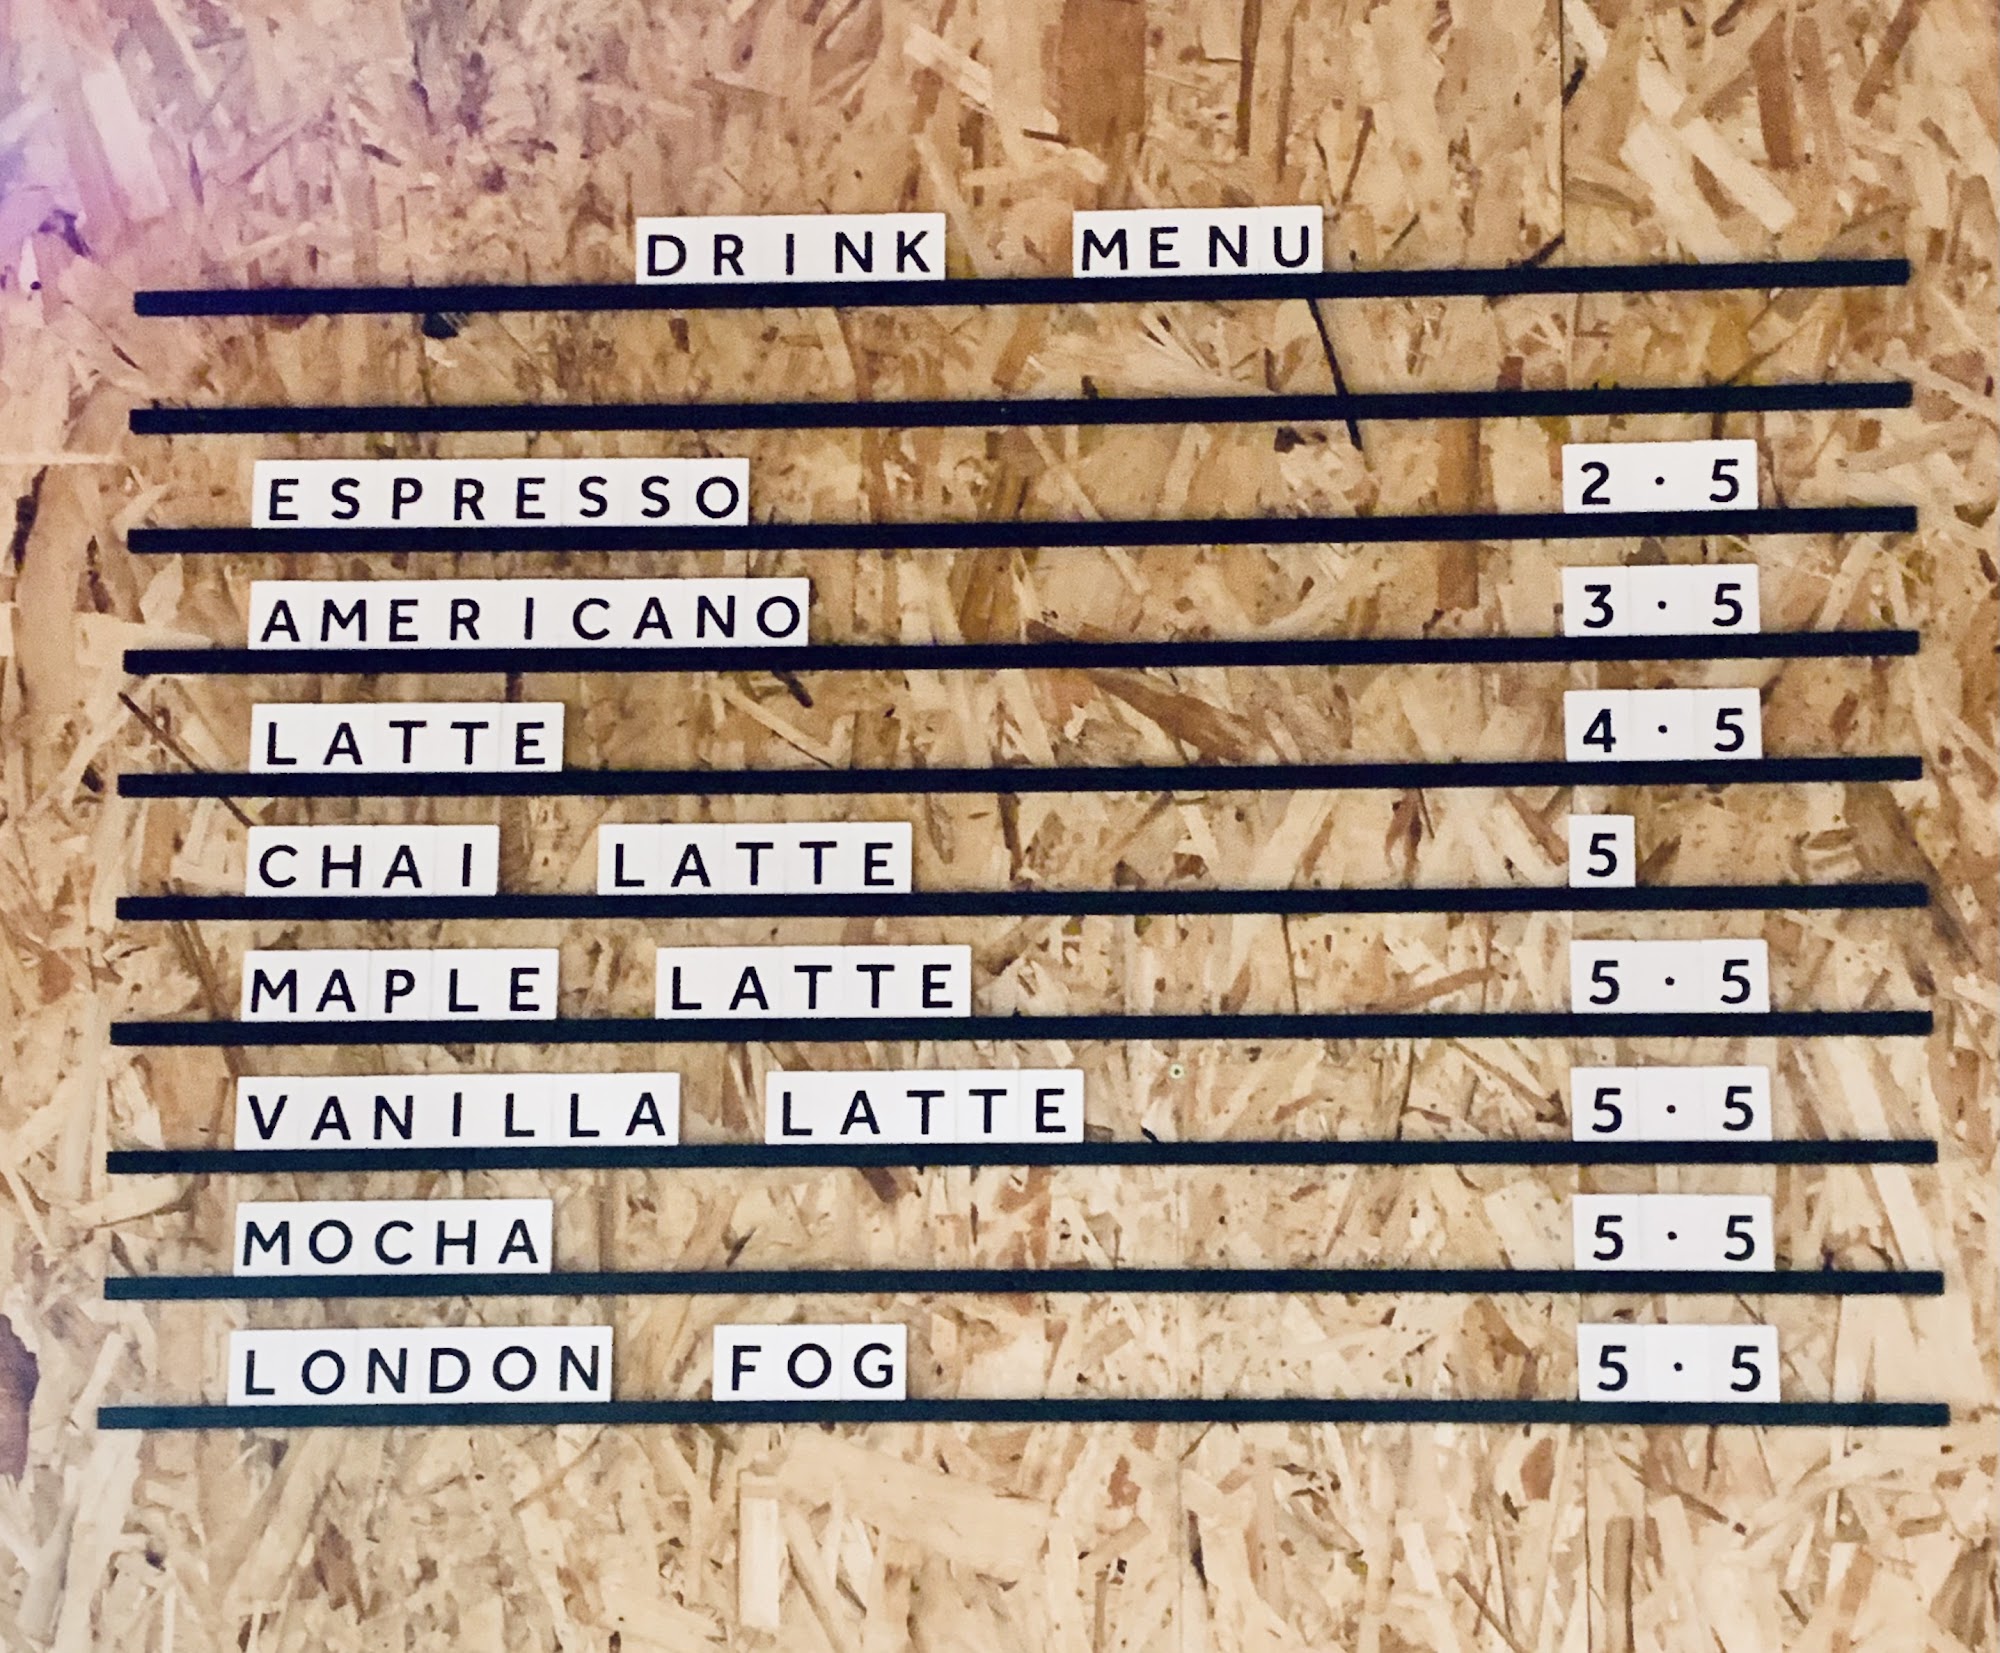 DRINK MENU
ESPRESSO 2·5
AMERICANO 3·5
LATTE 4·5
CHAI LATTE 5
MAPLE LATTE 5·5
VANILLA LATTE 5·5
MOCHA 5·5
LONDON FOG 5·5